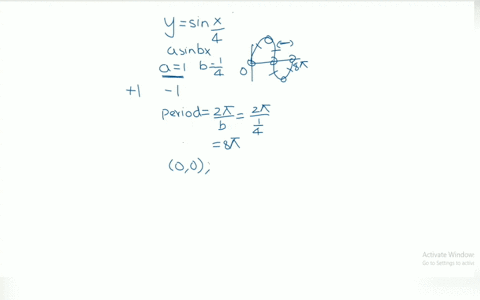 y = sin x/4
a sin bx
a = 1 b = 1/4
0 8π
+1 -1
period = 2π/b = 2π/(1/4)
= 8π
(0,0);
Activate Window
Go to Settings to activa